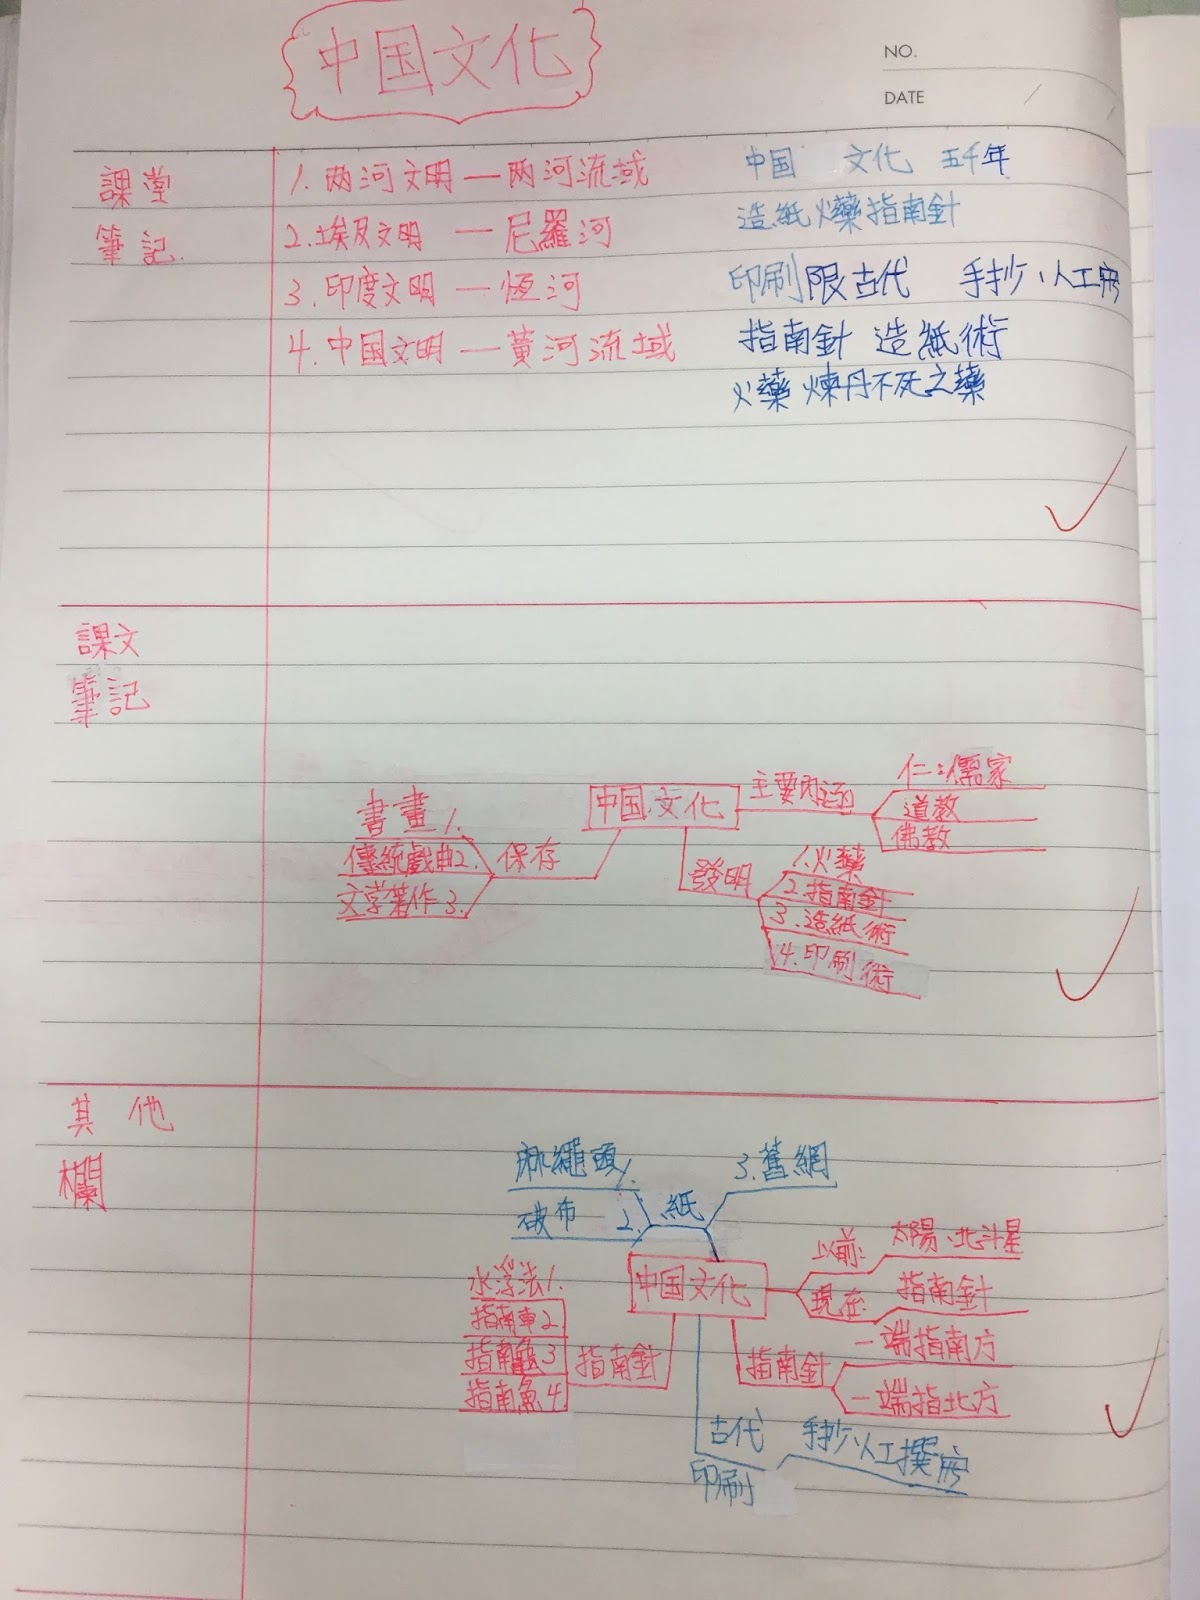 中国文化
NO.
DATE
課堂
筆記
1. 两河文明 — 两河流域
2. 埃及文明 — 尼羅河
3. 印度文明 — 恆河
4. 中国文明 — 黃河流域
中国 文化 五千年
造紙火藥指南針
印刷限古代 手抄、人工
指南針 造紙術
火藥 煉丹不死之藥
課文
筆記
中国文化
主要內涵
仁:儒家
道教
佛教
保存
書畫1.
傳統戲曲2.
文学著作3.
發明
1.火藥
2.指南針
3.造紙術
4.印刷術
其他
欄
中国文化
紙
麻繩頭1.
破布 2.
3.舊網
以前:
太陽、北斗星
現在:
指南針
指南針
一端指南方
一端指北方
指南針
水浮法1.
指南車2
指南龜3
指南魚4
古代
印刷
手抄、人工撰